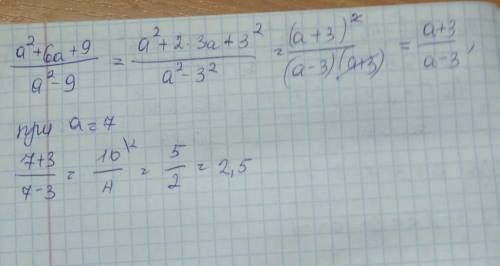 (a²+6a+9)/(a²-9) = (a²+2·3a+3²)/(a²-3²) = (a+3)²/((a-3)(a+3)) = (a+3)/(a-3),
при a=7
(7+3)/(7-3) = 10/4 = 5/2 = 2,5